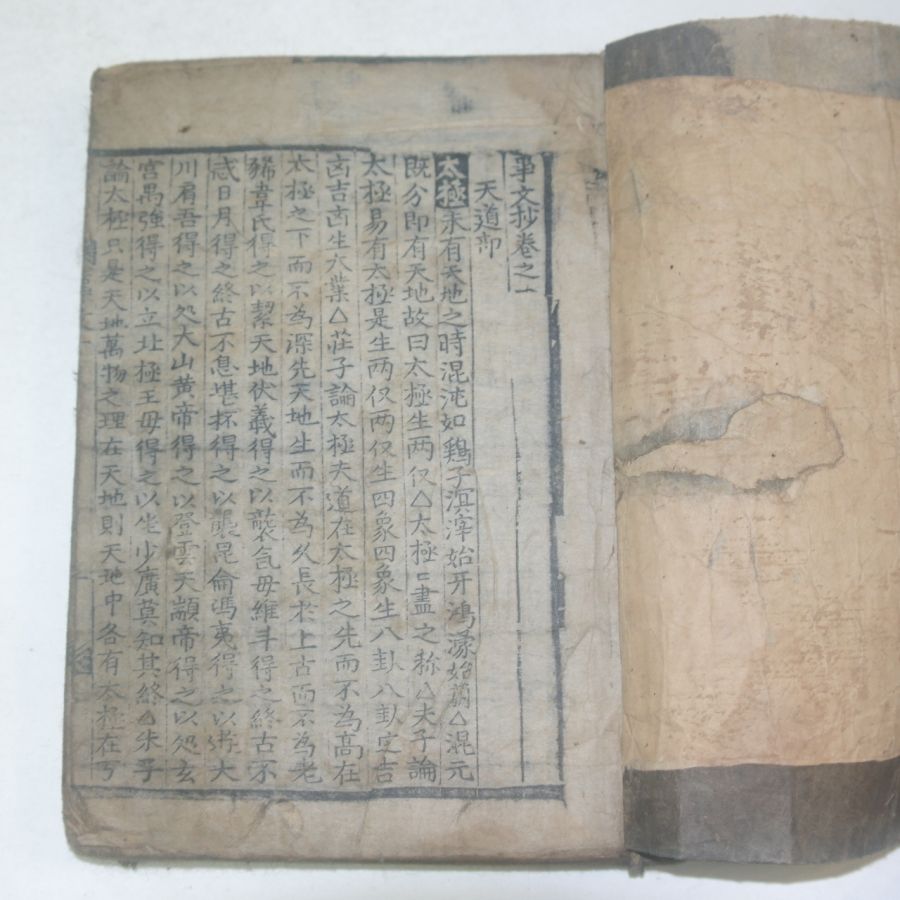 事文抄卷之一
天道部
太極未有天地之時混沌如鷄子溟涬始牙鴻濛始萌△混元
既分即有天地故曰太極生两仪△太極〻盡之称△夫子論
太極易有太極是生两仪两仪生四象四象生八卦八卦定吉
凶吉凶生大業△莊子論太極夫道在太極之先而不為高在
太極之下而不為深先天地生而不為久長於上古而不為老
豨韋氏得之以挈天地伏羲得之以襲氣母維斗得之終古不
忒日月得之終古不息堪杯得之以襲昆侖馮夷得之以游大
川肩吾得之以処大山黄帝得之以登雲天顓帝得之以処玄
宮禺強得之以立北極王母得之以坐少廣莫知其終△朱子
論太極只是天地萬物之理在天地則天地中各有太極在万